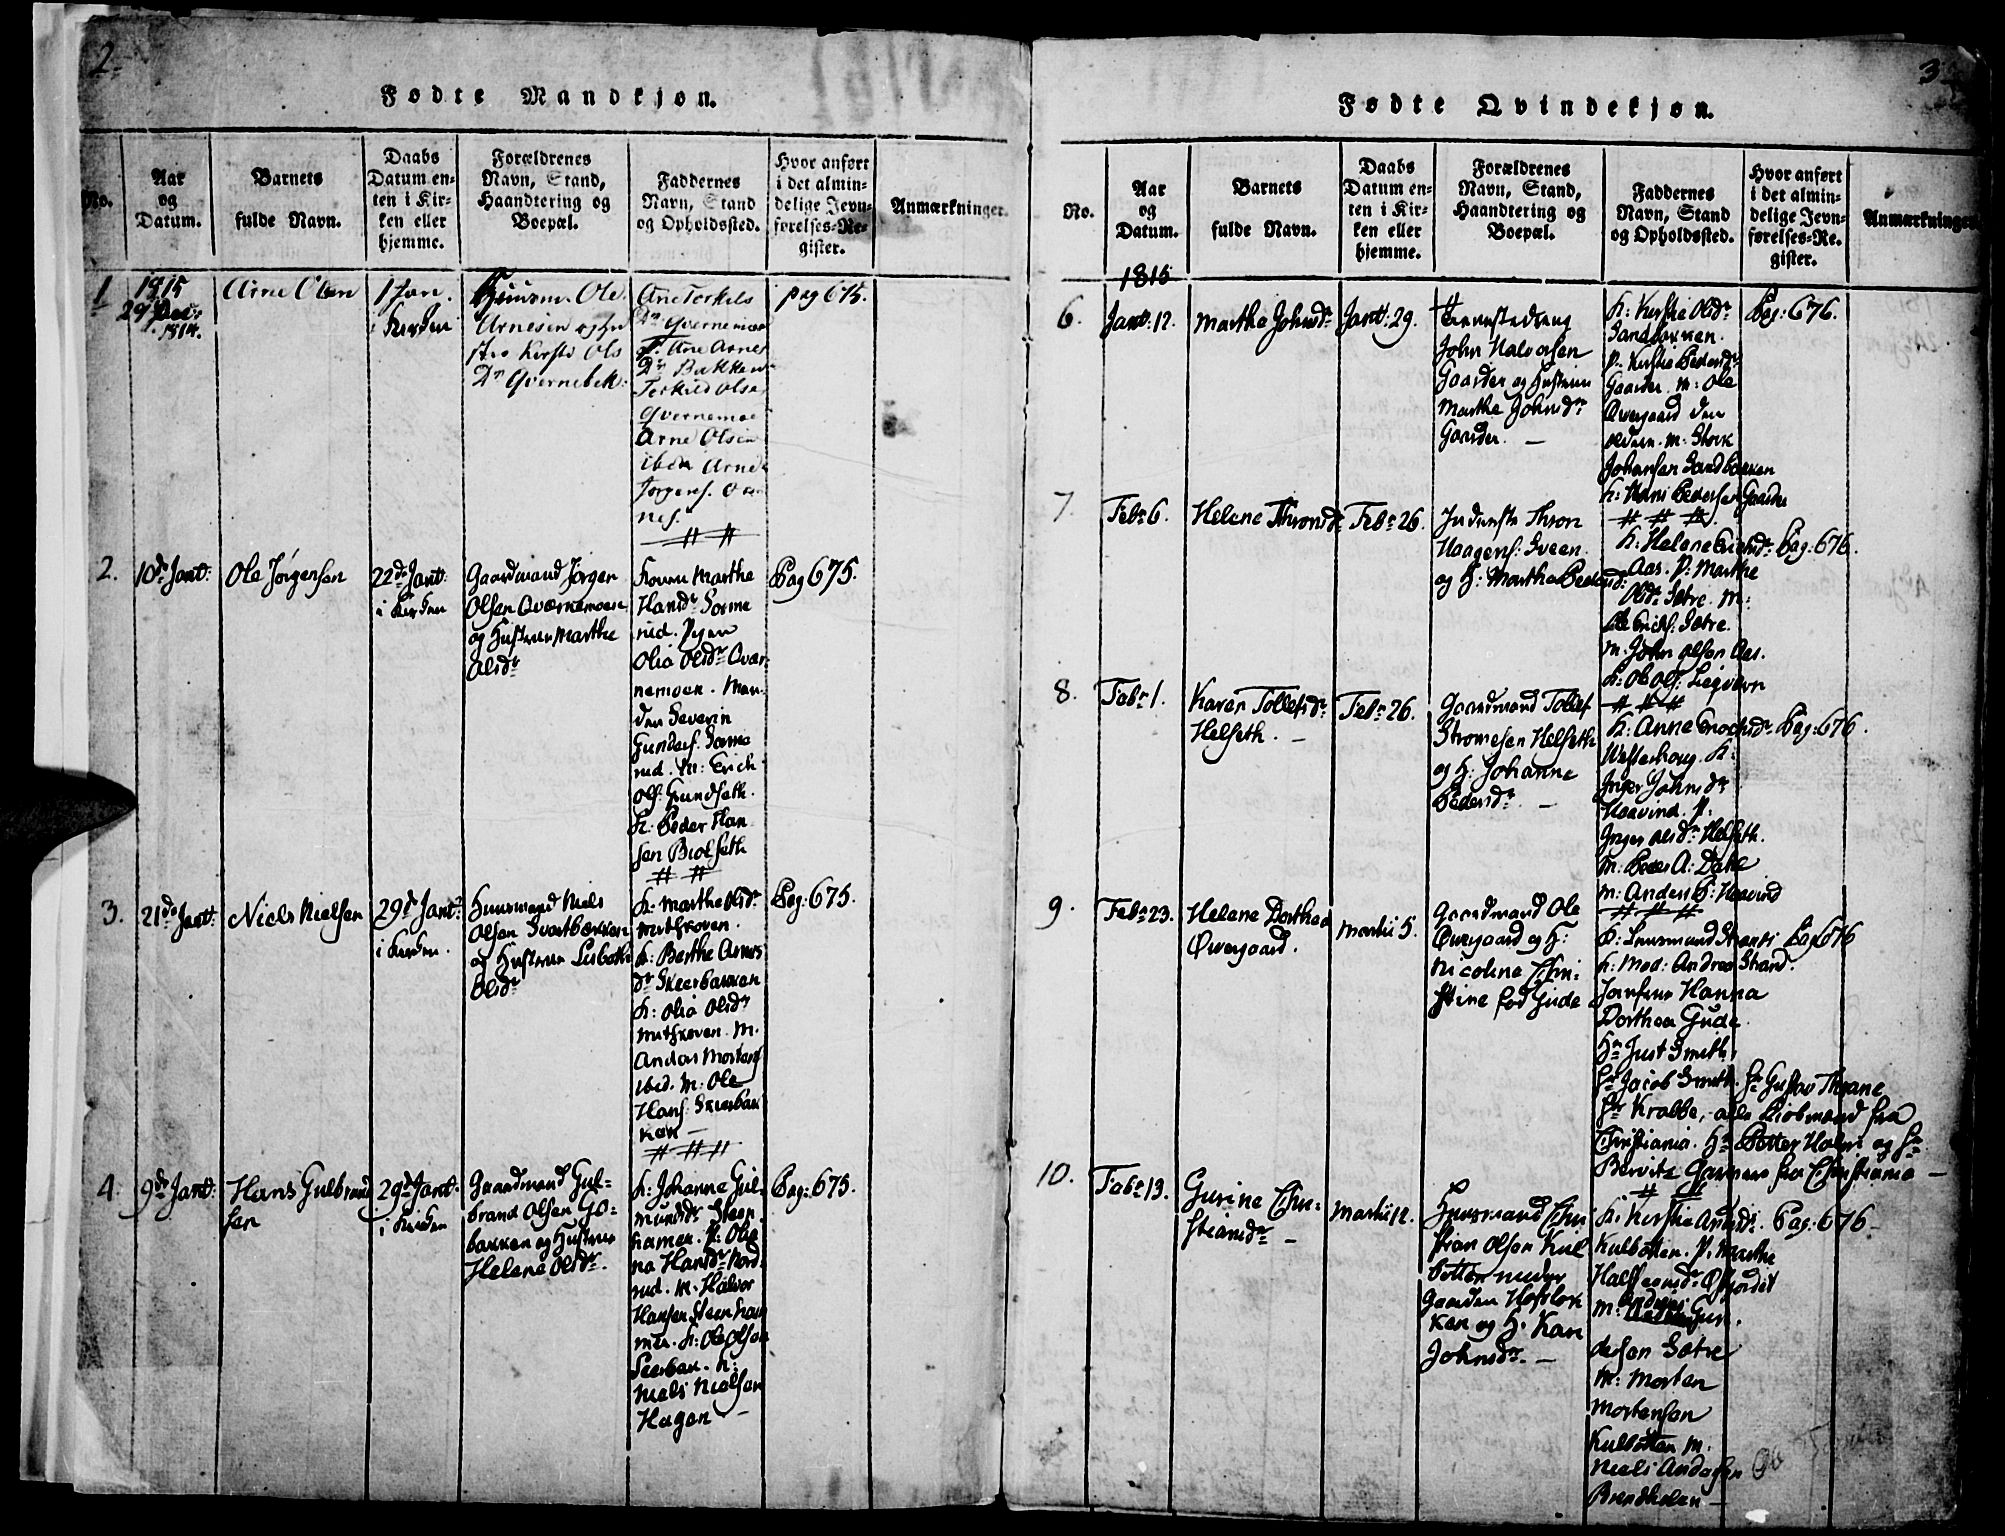 2.
Fødte Mandkjøn.
No.
Aar
og
Datum.
Barnets
fulde Navn.
Daabs
Datum en-
ten i Kir-
ken eller
hjemme.
Forældrenes
Navn, Stand,
Haandtering og
Boepæl.
Faddernes
Navn, Stand
og Opholdssted.
Hvor anført
i det almin-
delige Jevn-
førelses-Re-
gister.
Anmærkninger.
1
1815
29 Dec:
1814.
Arne Olsen
1 Jan.
i Kirken
Huusm. Ole
Arnesen og Hu
stro Kirsti Ols
Dr Qvernebek.
Ane Torkels
Dr Qvernemoe
P. Ane Arnes
Dr Bakken
Torkild Olse
Qvernemoe
Arne Olsen
ibdn Arne
Jørgens.
pag 675.
2.
10de Jant:
Ole Jørgensen
22de Jant:
i Kirken
Gaardmand Jørgen
Olsen Qværnemoen
og Hustrue Marthe
Olsdr
Konen Marthe
Hansdr Sorme
rud. Pigen
Olia Olsdr Qvær
nemoen. Man-
den Severin
Gunders. Sorme
rud. M: Erich
Ols: Grundseth.
K. Peder Han
sen Biolseth
Pag 675.
3.
21de Jant:
Niels Nielsen
29de Jant:
i Kirken.
Huusmand Niels
Olsen Svartbækken
og Hustrue Lisbeth
Olsdr
K: Marthe Olsdr
Mythskoven.
K: Berthe Arnes
dr Skierbakken
K: Olia Olsdr
Mythskoven. M.
Anders Mortens
ibid. M: Ole
Hans: Skierbak
ken —
Pag: 675.
4.
9de Jant:
Hans Gulbrand
sen
29de Jant:
i Kirken
Gaardmand Gul-
brand Olsen Go-
bakken og Hustrue
Helene Olsdr.
K: Johanne Gul-
mundsdr Steen
hamer. P: Olia
na Hansdr Nord
rud. M. Halvor
Hansen Steenham
mer. K: Ole Olsen
Seerbak. K:
Niels Nielsen
Hagen —
Pag: 675.
3
Fødte Qvindekjøn.
No.
Aar
og
Datum.
Barnets
fulde Navn.
Daabs
Datum en-
ten i Kir-
ken eller
hjemme.
Forældrenes
Navn, Stand,
Haandtering og
Boepæl.
Faddernes
Navn, Stand
og Opholdssted.
Hvor anført
i det almin-
delige Jevn-
førelses-Re-
gister.
Anmærkninger
1815
6.
Jant: 12.
Marthe Johnsdr
Jant: 29.
John Halvorsen
Gaarder og Hustrue
Marthe Johnsdr
Gaarder. —
K: Kirstie Olsdr
Sandbakken.
P. Kirstie Pedersdr
Gaarder. M: Ole
Øvergaard den
ældere. M: Stork
Johansen Sandbakken
K: Hans Pedersen Gaarder
Pag: 676.
7
Febr 6.
Helene Thronsdr
Febr 26.
Inderste Thron
Haagens: Sveen
og H: Marthe Pedersdr
K: Helene Erichsdr
Aas. P: Marthe
Olsdr Sætre. M:
Ole Erichs: Sætre.
M. John Olsen Aas.
K: Ole Ols: Liegvern
Pag: 676.
8.
Febr 1.
Karen Tollefsdr
Helseth. —
Febr 26.
Gaardmand Tollef
Stromesen Helseth
og H: Johanne
Pedersdr —
K: Anne Enochsdr
Westerhoug. K:
Inger Johnsdr
Haavind. P.
Inger Olsdr Helseth.
M: Peder A: Dahl
M: Anders P: Haavind
Pag: 676.
9.
Febr 23.
Helene Dorthea
Øvergaard.
Martii 5.
Gaardmand Ole
Øvergaard og H:
Nicoline Chri-
stine fød Gude
K: Lensmand Strands
K: Mad: Andrea Strand.
Jomfrue Hanna
Dorthea Gude.
Hr Just Smith,
Hr Jacob Smith. Hr Gustav Thrane
Hr Krabbe, alle Kiøbmænd fra
Christiania. Hr Petter Holm og Hr
fra Christiania —
Pag 676
10.
Febr 13.
Gurine Chri-
stiansdr —
Martii 12.
Huusmand Chri
stian Olsen Kul
botten under
Gaarden Hofslok
ken og H: Kari
Johnsdr. —
K: Kirstie Amundsdr
Kulbotten. P. Marthe
Halstensdr Øfjordet
M: Anders Gun.
dersen Sætre
M: Morten
Mortensen
Kulbotten M.
Niels Andersen
Brendholen —
Pag: 676